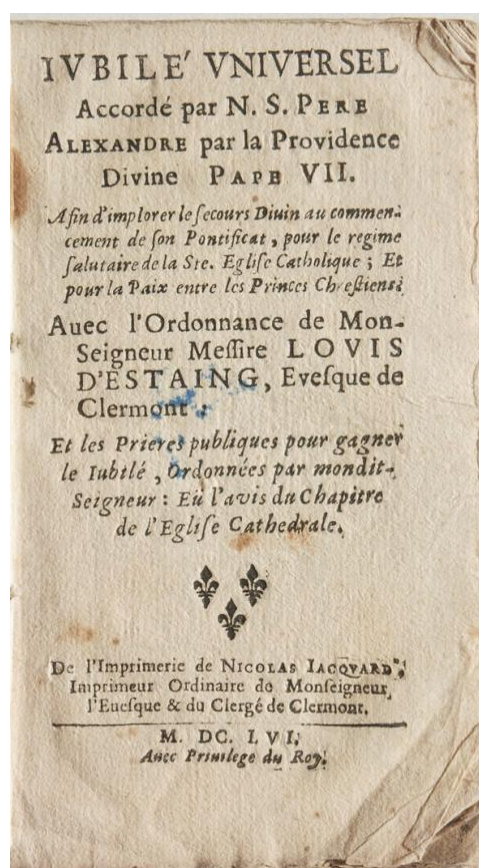 IVBILE' VNIVERSEL
Accordé par N. S. PERE
ALEXANDRE par la Providence
Divine PAPE VII.
Afin d'implorer le ſecours Diuin au commen-
cement de ſon Pontificat, pour le regime
ſalutaire de la Ste. Egliſe Catholique ; Et
pour la Paix entre les Princes Chreſtiens.
Auec l'Ordonnance de Mon-
Seigneur Meſſire LOVIS
D'ESTAING, Eveſque de
Clermont :
Et les Prieres publiques pour gagner
le Iubilé, Ordonnées par mondit-
Seigneur : Eü l'avis du Chapitre
de l'Egliſe Cathedrale.
De l'Imprimerie de NICOLAS IACQVARD,
Imprimeur Ordinaire de Monſeigneur
l'Eueſque & du Clergé de Clermont.
M. DC. LVI.
Auec Priuilege du Roy.